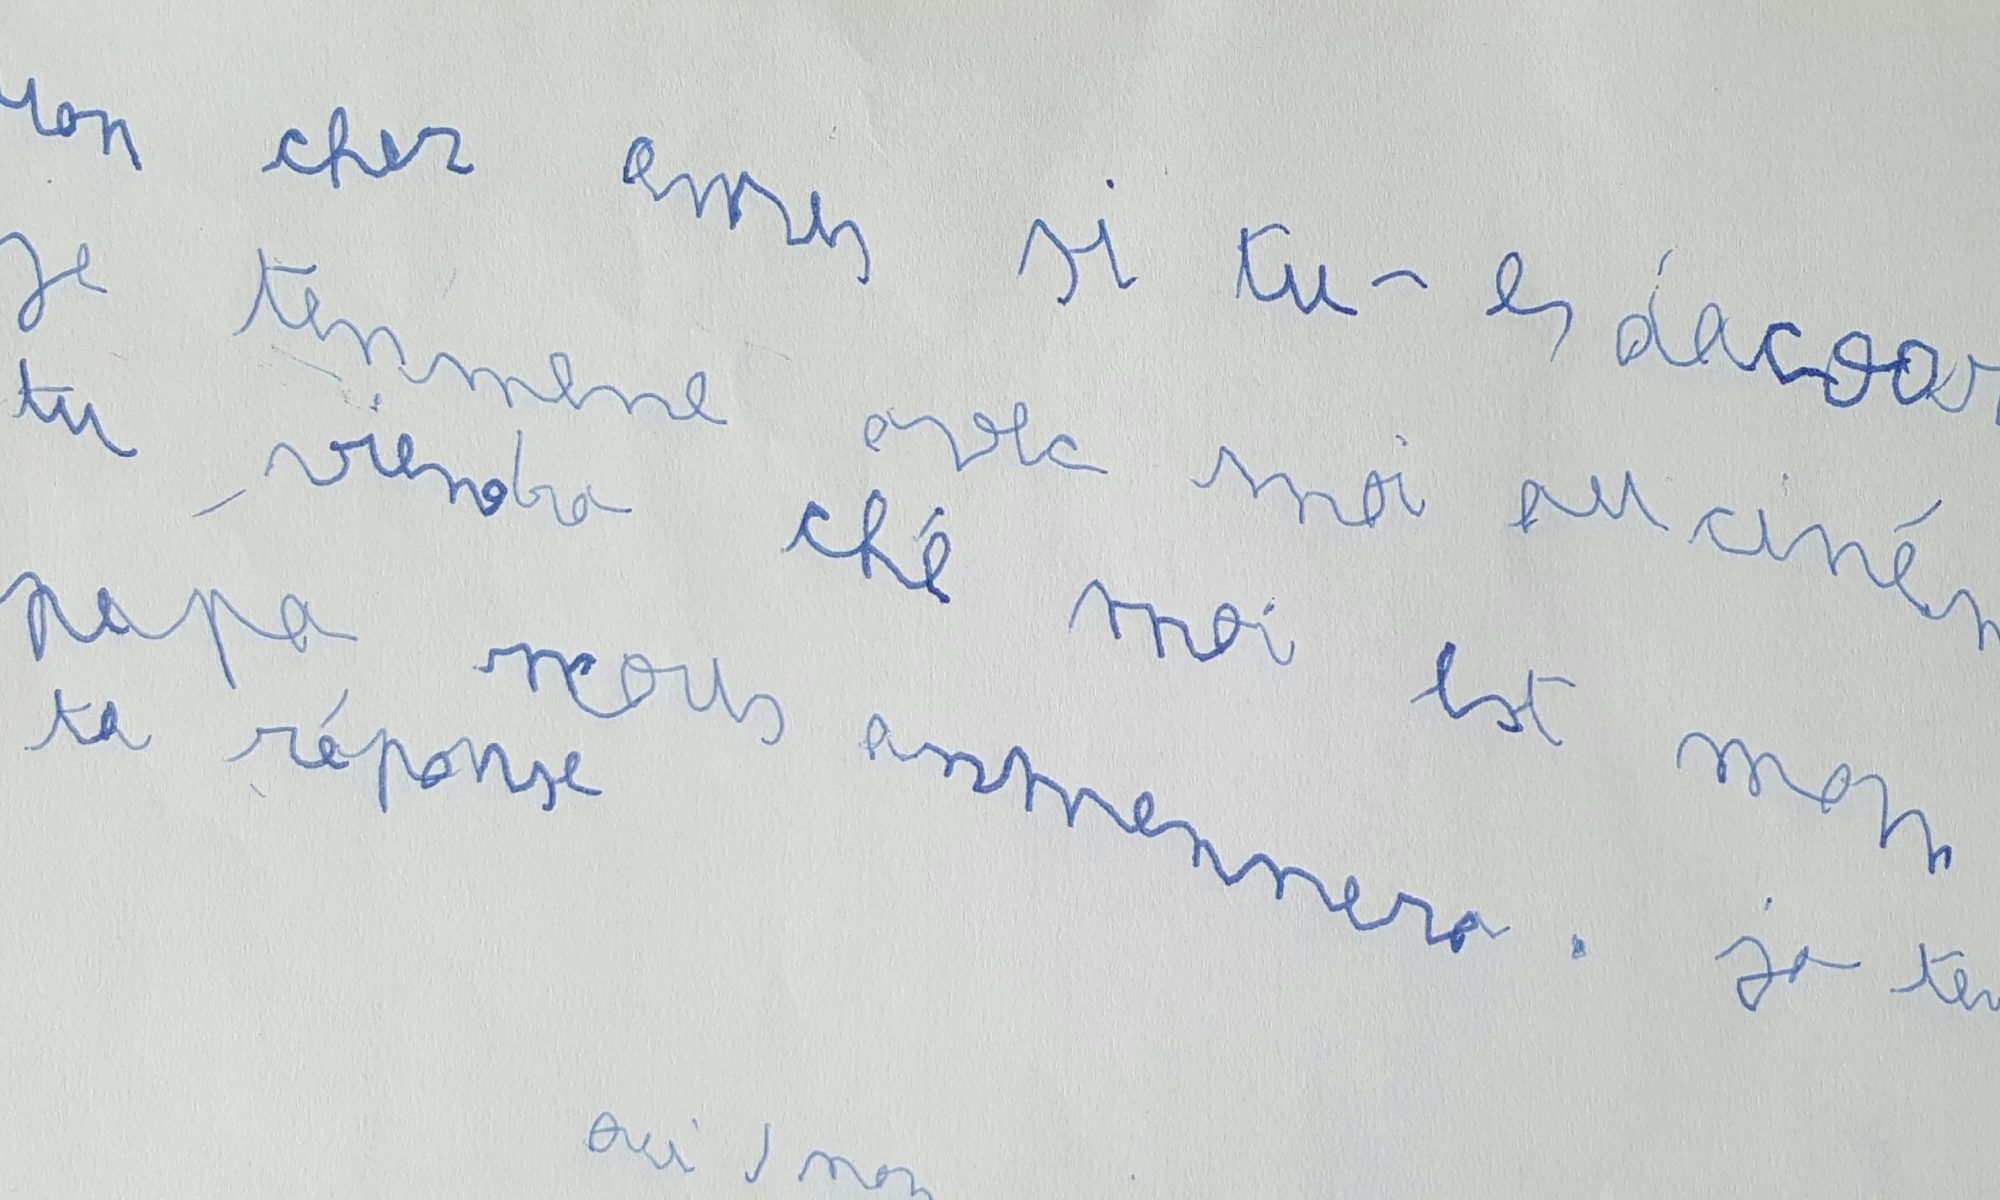 mon cher si tu es dacoar
je tenmene avec moi au ciném
tu viendra ché moi est mon
papa nous anmennera. ja ten
ta réponse
oui / non